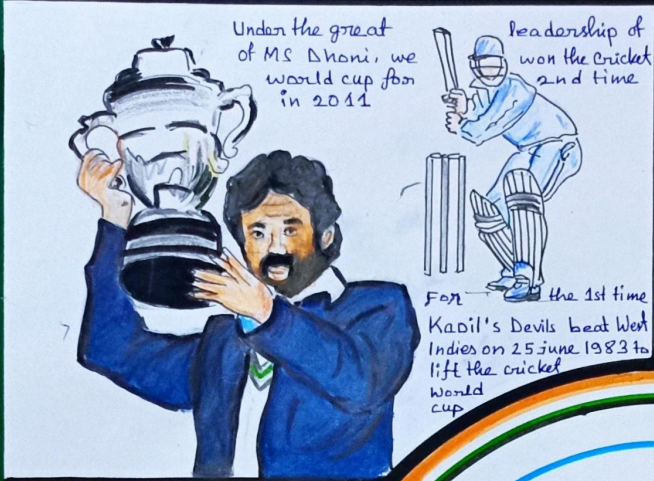 Under the great leadership of
of MS Dhoni, we won the cricket
world cup for 2nd time
in 2011
For the 1st time
Kapil's Devils beat West
Indies on 25 june 1983 to
lift the cricket
World
cup